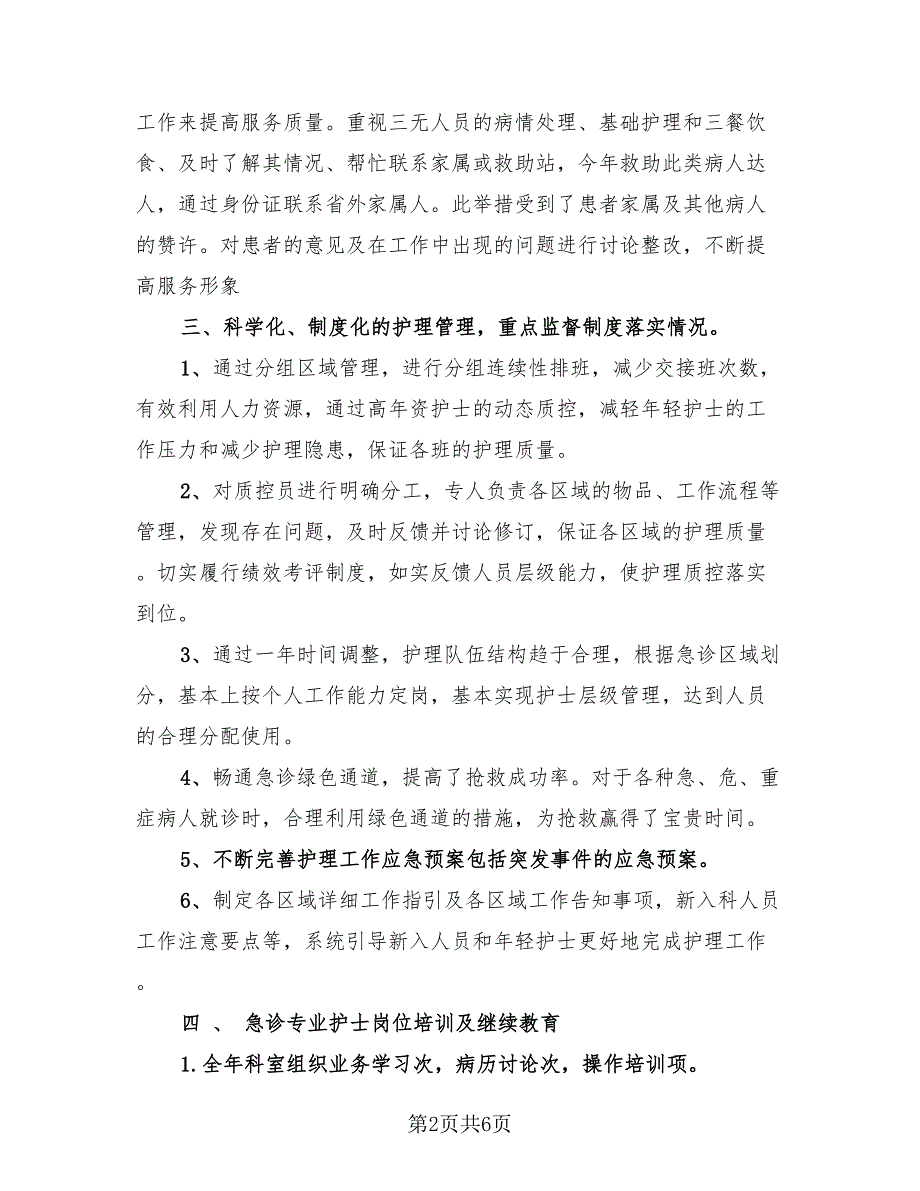 工作来提高服务质量。重视三无人员的病情处理、基础护理和三餐饮
食、及时了解其情况、帮忙联系家属或救助站，今年救助此类病人达
人，通过身份证联系省外家属人。此举措受到了患者家属及其他病人
的赞许。对患者的意见及在工作中出现的问题进行讨论整改，不断提
高服务形象
三、科学化、制度化的护理管理，重点监督制度落实情况。
1、通过分组区域管理，进行分组连续性排班，减少交接班次数，
有效利用人力资源，通过高年资护士的动态质控，减轻年轻护士的工
作压力和减少护理隐患，保证各班的护理质量。
2、对质控员进行明确分工，专人负责各区域的物品、工作流程等
管理，发现存在问题，及时反馈并讨论修订，保证各区域的护理质量
。切实履行绩效考评制度，如实反馈人员层级能力，使护理质控落实
到位。
3、通过一年时间调整，护理队伍结构趋于合理，根据急诊区域划
分，基本上按个人工作能力定岗，基本实现护士层级管理，达到人员
的合理分配使用。
4、畅通急诊绿色通道，提高了抢救成功率。对于各种急、危、重
症病人就诊时，合理利用绿色通道的措施，为抢救赢得了宝贵时间。
5、不断完善护理工作应急预案包括突发事件的应急预案。
6、制定各区域详细工作指引及各区域工作告知事项，新入科人员
工作注意要点等，系统引导新入人员和年轻护士更好地完成护理工作
。
四 、 急诊专业护士岗位培训及继续教育
1.全年科室组织业务学习次，病历讨论次，操作培训项。
第2页共6页